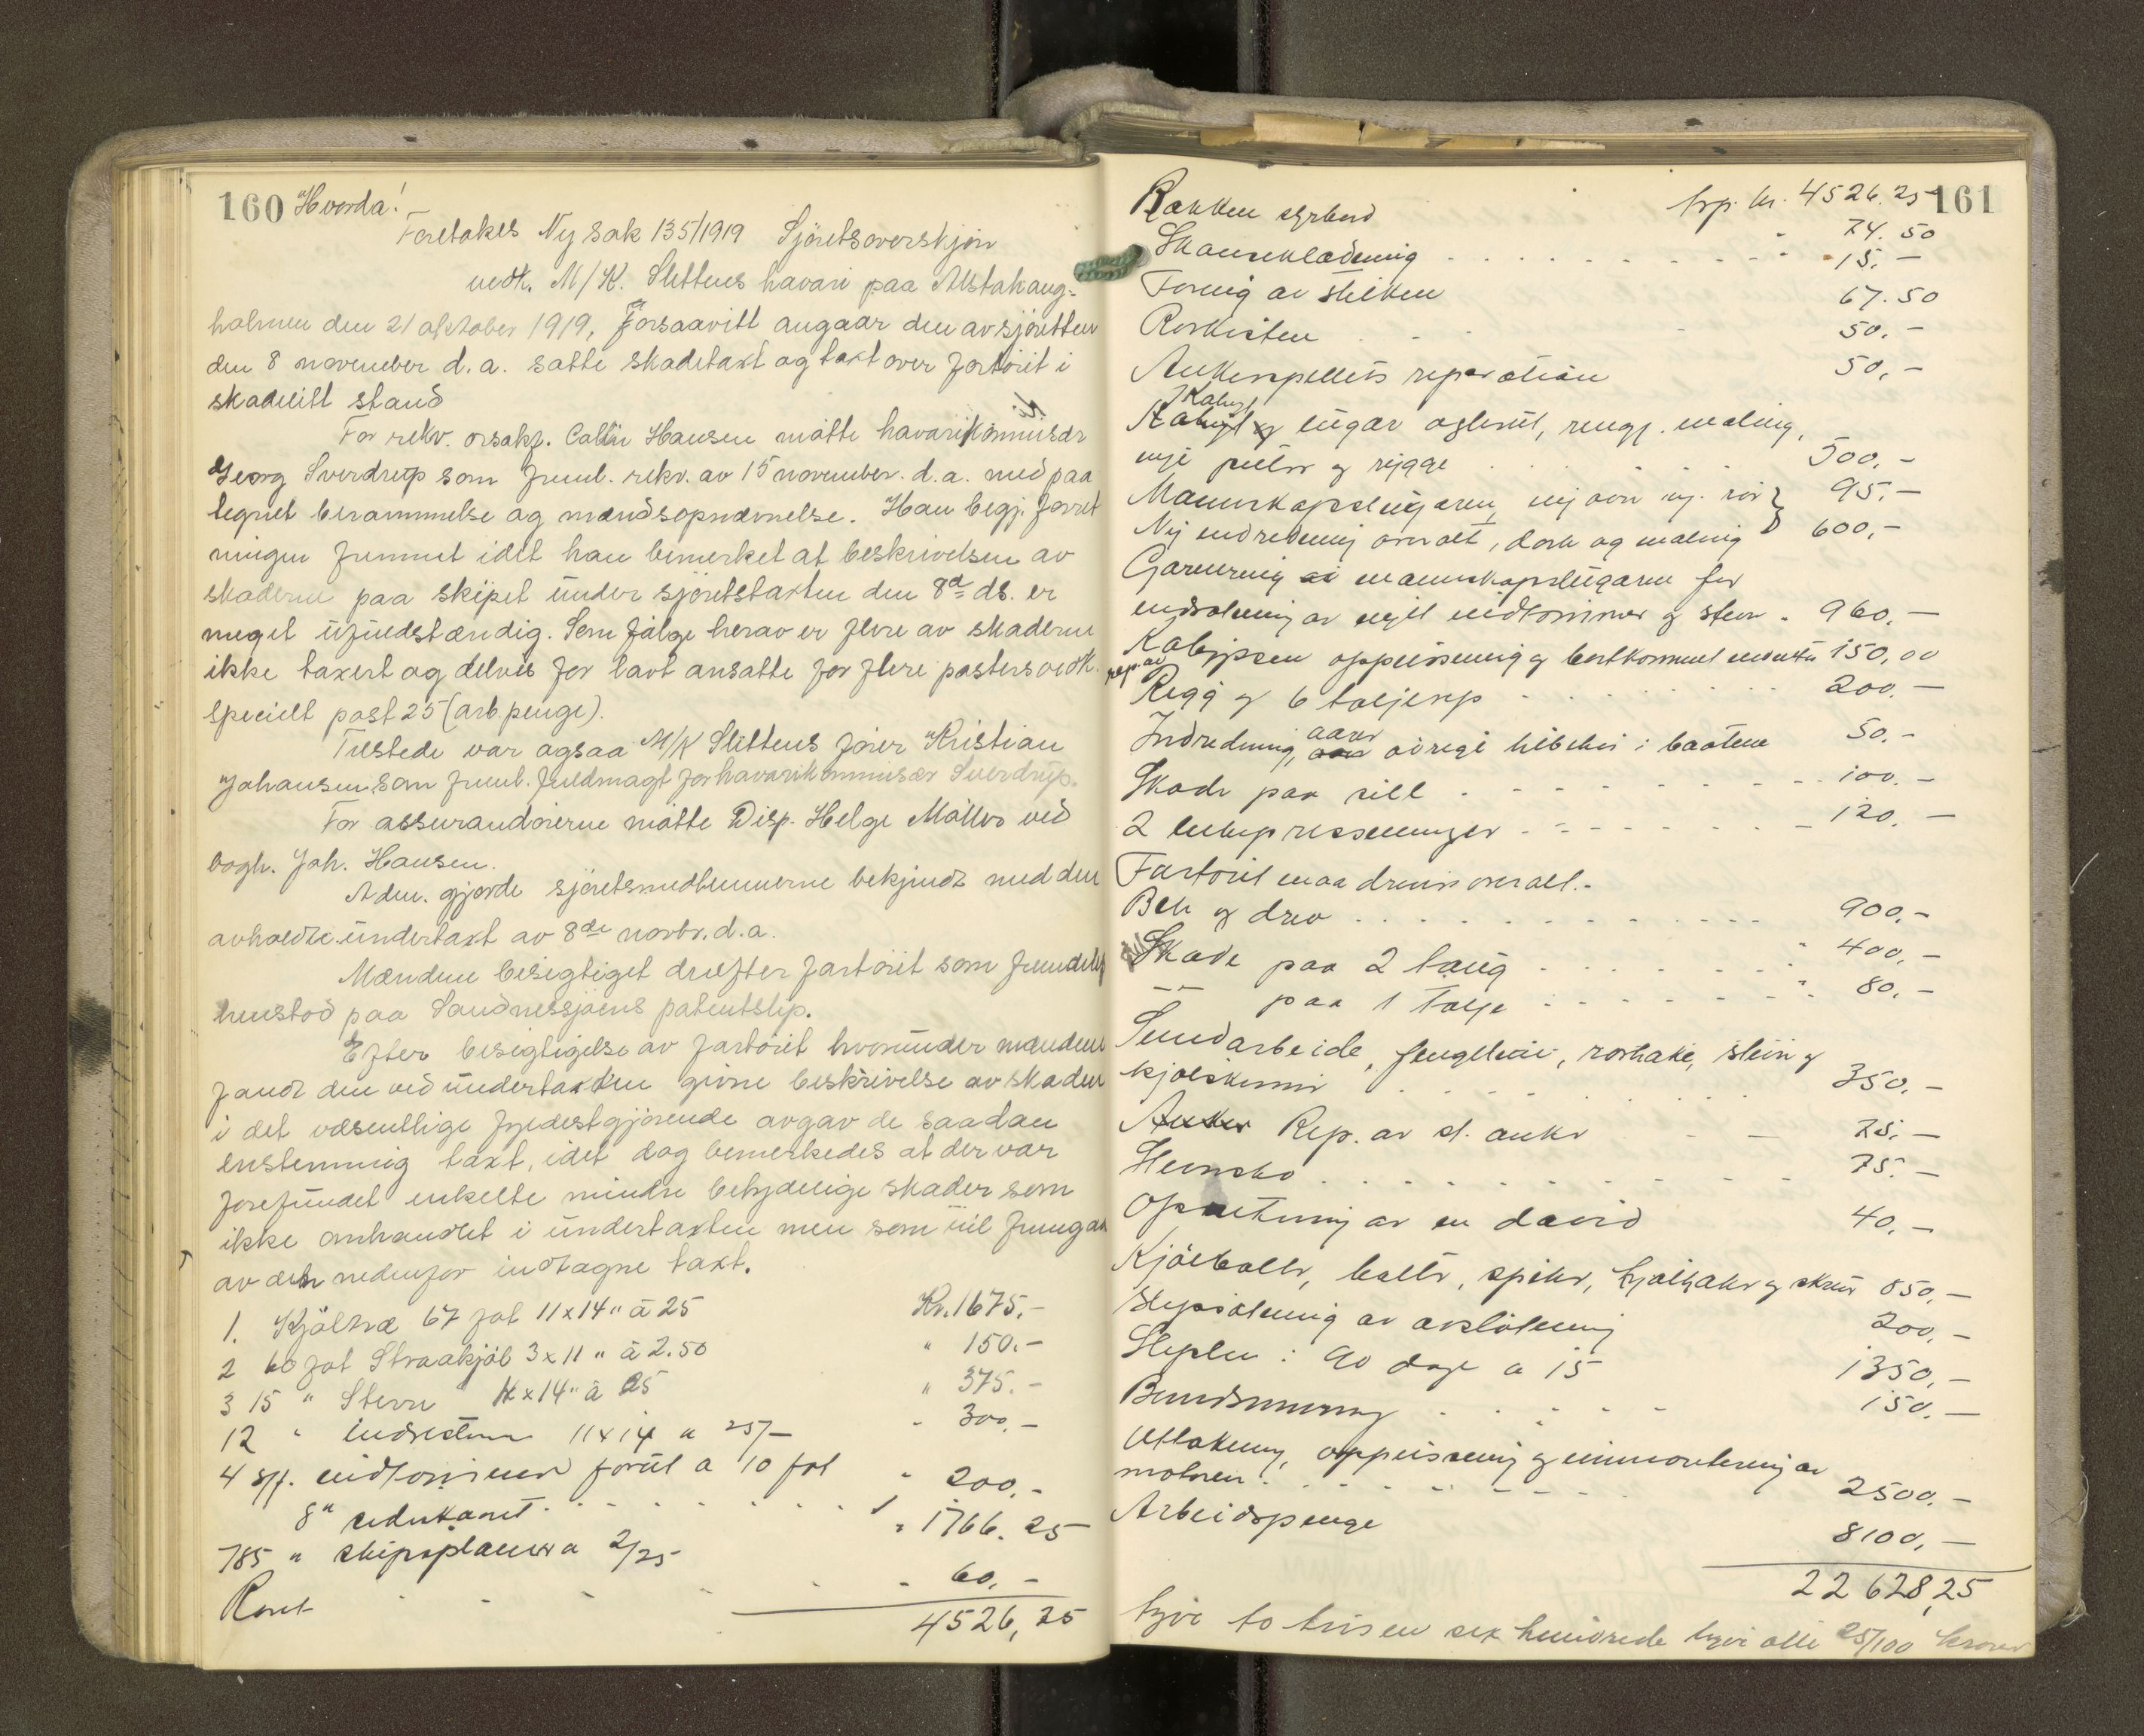 160 Hvorda!
Foretokes Ny sak 135/1919 Sjöretsoverskjön
vedk. M/K. Slettens havari paa Alstahaug=
holmen den 21 oktober 1919, Forsaavitt angaar den av sjöretten
den 8 november d.a. satte skadetaxt og taxt over fartöiet i
skadeitt stand
For rekv. orsakf. Collin Hansen mötte havarikommisær
Georg Sverdrup som freml. rekv. av 15 november. d.a. med paa
tegnet berammelse og mændsopnævnelse. Han begj. forret
ningen fremmet idet han bemerket at beskrivelsen av
skaderne paa skipet under sjöretstaxten den 8de ds. er
meget ufuldstændig. Som fölge herav er flere av skaderne
ikke taxert og delvis for lavt ansatte for flere posters vedk.
specielt post 25 (arb. penge).
Tilstede var ogsaa M/K Slettens förer Kristian
Johansen, som freml. fuldmagt for havarikommisær Sverdrup.
For assurandörerne mötte Disp. Helge Möller ved
bogh. Joh. Hansen.
Adm. gjorde sjöretsmedlemmerne bekjendt med den
avholdte undertaxt av 8de novbr. d.a.
Mændene besigtiget derefter fartöiet som fremdeles
henstod paa Sandnessjöens patentslip.
Efter besigtigelse av fartöiet hvorunder mændene
fandt den ved undertaxten givne beskrivelse av skaden
i det væsentlige fyldestgjörende avgav de saadan
enstemmig taxt, idet dog bemerkedes at der var
forefundet enkelte mindre betydelige skader som
ikke omhandlet i undertaxten men som vil fremgaa
av den nedenfor indtagne taxt.
1. Kjöltræ 67 fot 11x14" à 25 Kr. 1675.-
2 60 fot Straakjöl 3x11 " à 2.50 " 150.-
3 15 " Stevn 11x14" à 25 " 375.-
12 " indrestevn 11x14 a 25/- " 300.-
4 spt. indtömmer forut a 10 fot " 200.-
8"
785 " skipsplanker a 2/25 " 1766.25
Roret " 60.-
4526,25
161
Rækken styrbord trp. kr. 4526.25
Skanseklædning 74.50
Foring av stikken 15.-
Rorkisten 67.50
Ankerspillets reparation 50.-
50.-
Kabys
Kahyt og lugar aglerut, rengj. maling,
nye puter og rygge 500.-
Mannskapslugaren, ny ovn ny. rör 95.-
Ny indredning overalt, dork og maling 600.-
Garnering i mannskapslugaren for
indsætning av nyt indtömmer og stevn 960.-
Kabyssen oppudsning og bortkommet inventar 150,00
rep. av
Rigg og 6 taljerep 200.-
Indredning, aarer övrige tilbehör i baatene 50.-
Skade paa seil 100.-
2 lukepresseninger 120.-
Fartöiet maa drives overalt.-
Bek og drev 900.-
Skade paa 2 taug 400.-
-"- paa 1 talje 80.-
Smedarbeide, fengeline, rorhake, stevn og
kjölskinner 350.-
Rep. av st. anker 75.-
Hevnsko 75.-
Opretning av en david 40.-
Kjölbolter, bolter, spiker, og skruer 850.-
Slipsætning av avslipning 200.-
Slipleie: 90 dage a 15 1350.-
Bundsmöring 150.-
Uttakning, oppudsning og inmontering av
motoren 2500.-
Arbeidspenge 8100,-
22628,25
tyve to tusen sex hundrede tyve otte 25/100 kroner